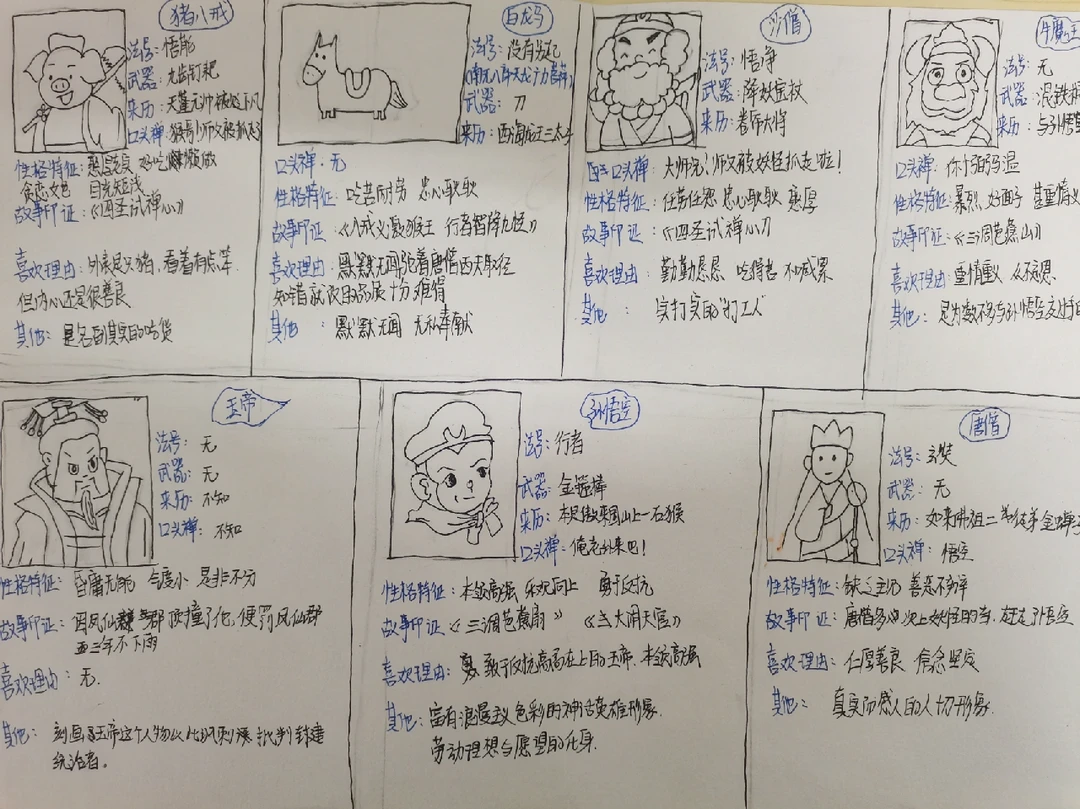 猪八戒
法号：悟能
武器：九齿钉耙
来历：天蓬元帅被贬下凡
口头禅：猴哥！师父被抓走了
性格特征：好吃懒做
贪恋女色 目光短浅
故事印证：《四圣试禅心》
喜欢理由：外表是只猪，看着有点笨
但内心还是很善良
其他：是名副其实的吃货
白龙马
法号：没有发起
(南无八部天龙广力菩萨)
武器：刀
来历：西海龙王三太子
口头禅：无
性格特征：吃苦耐劳 忠心耿耿
故事印证：《八戒义激猴王 行者智降九怪》
喜欢理由：默默无闻驼着唐僧西天取经
如昔哀农的品质十分难得
其他：默默无闻 无私奉献
沙僧
法号：悟净
武器：降妖宝杖
来历：卷帘大将
口头禅：大师兄！师父被妖怪抓走啦！
性格特征：任劳任怨 忠心耿耿 憨厚
故事印证：《四圣试禅心》
喜欢理由：勤勤恳恳 吃得苦 不喊累
其他：实打实的"打工人"
牛魔王
法号：无
武器：混铁
来历：与孙悟
口头禅：你个泼猢狲
性格特征：暴烈、好面子 甚重情义
故事印证：《三调芭蕉山》
喜欢理由：重情重义
其他：是为数不多与孙悟空交好的
玉帝
法号：无
武器：无
来历：不知
口头禅：不知
性格特征：昏庸无能 气度小 是非不分
故事印证：因凤仙郡 郡 顶撞了他，便罚凤仙郡
三年不下雨
喜欢理由：无.
其他：刻画了玉帝这个人物以此讽刺 批判封建
统治者。
孙悟空
法号：行者
武器：金箍棒
来历：本是傲来国山上一石猴
口头禅：俺老孙来也！
性格特征：本领高强 乐观向上 勇于反抗
故事印证：《三调芭蕉扇》 《大闹天宫》
喜欢理由：敢于反抗高高在上的玉帝. 本领高强
其他：富有浪漫主义色彩的神话英雄形象.
劳动理想与愿望的化身.
唐僧
法号：玄奘
武器：无
来历：如来佛祖二弟徒弟金蝉子
口头禅：悟空
性格特征：缺乏主见 善恶不辨
故事印证：唐僧多次上妖怪的当，赶走孙悟空
喜欢理由：仁厚善良 信念坚定
其他：真实而感人的人切形象.